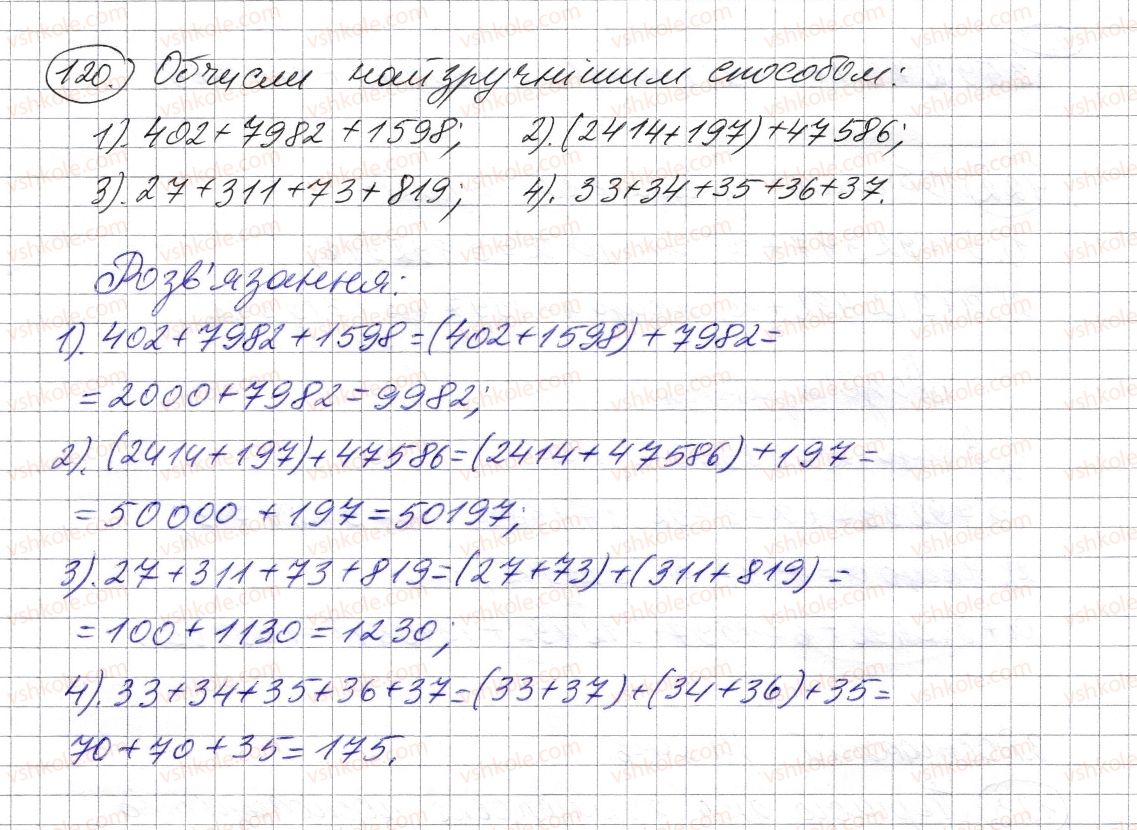 120. Обчисли найзручнішим способом:
1). 402+7982+1598; 2). (2414+197)+47586;
3). 27+311+73+819; 4). 33+34+35+36+37.
Розв'язання:
1). 402+7982+1598=(402+1598)+7982=
=2000+7982=9982;
2). (2414+197)+47586=(2414+47586)+197=
=50000+197=50197;
3). 27+311+73+819=(27+73)+(311+819)=
=100+1130=1230;
4). 33+34+35+36+37=(33+37)+(34+36)+35=
70+70+35=175.